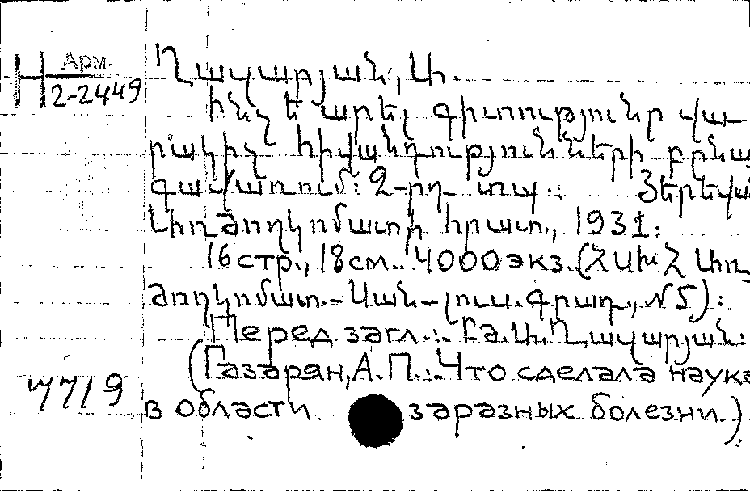 Арм.
Н 2-2449
Ղազարյան, Ա.
Ի՞նչ է արել գիտությունը վա-
րակիչ հիվանդությունների բնա
գավառում: 2-րդ տպ.: Յերևան
Լիողժողկոմատի հրատ., 1931:
16 стр., 18 см. 4000 экз. (ՀՍԽՀ Առող
ժողկոմատ.- Սան-լուս. գրադ., №5):
Перед загл.: Բժ. Ա. Ղազարյան:
(Газарян, А. П.: Что сделала наука
в области заразных болезни.)
7719